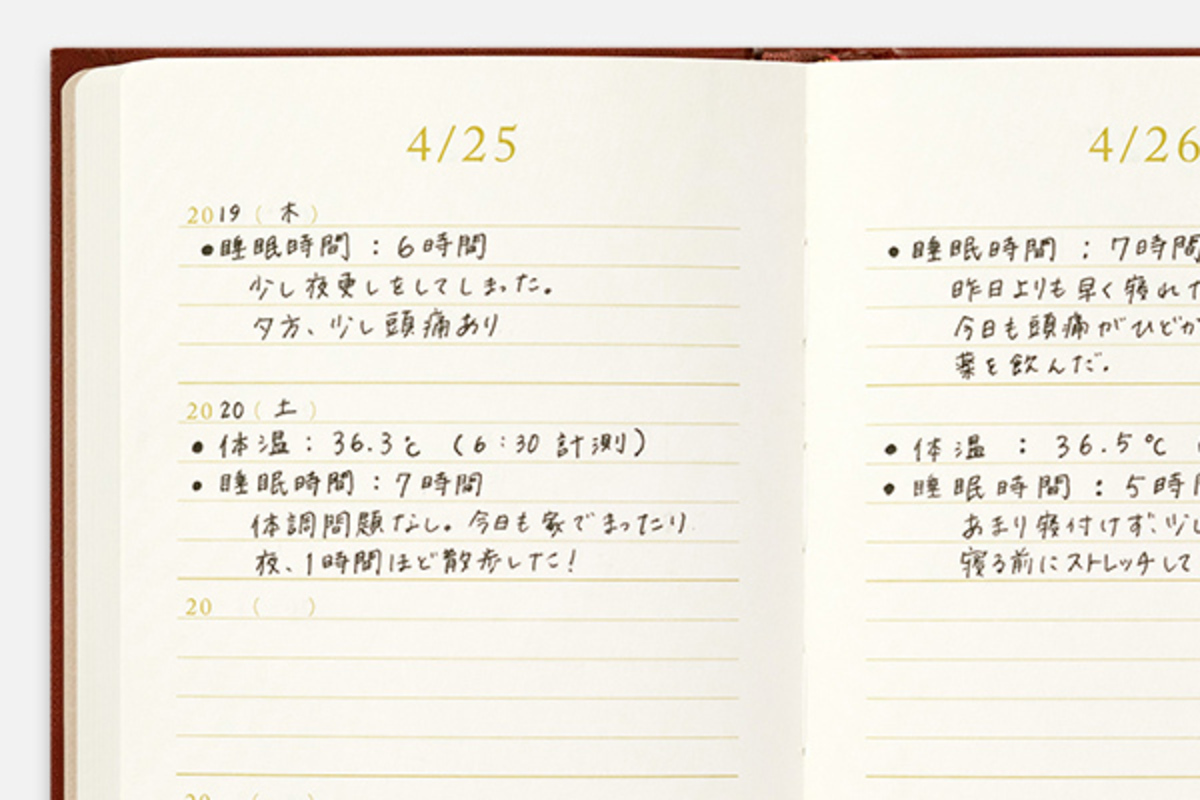 4/25
2019（木）
●睡眠時間：6時間
少し夜更しをしてしまった。
夕方、少し頭痛あり
2020（土）
●体温：36.3℃（6:30計測）
●睡眠時間：7時間
体調問題なし。今日も家でまったり
夜、1時間ほど散歩した！
20（ ）
20（ ）
4/26
●睡眠時間：7時間
昨日よりも早く寝れた
今日も頭痛がひどか
薬を飲んだ。
●体温：36.5℃（
●睡眠時間：5時間
あまり寝付けず、少し
寝る前にストレッチして